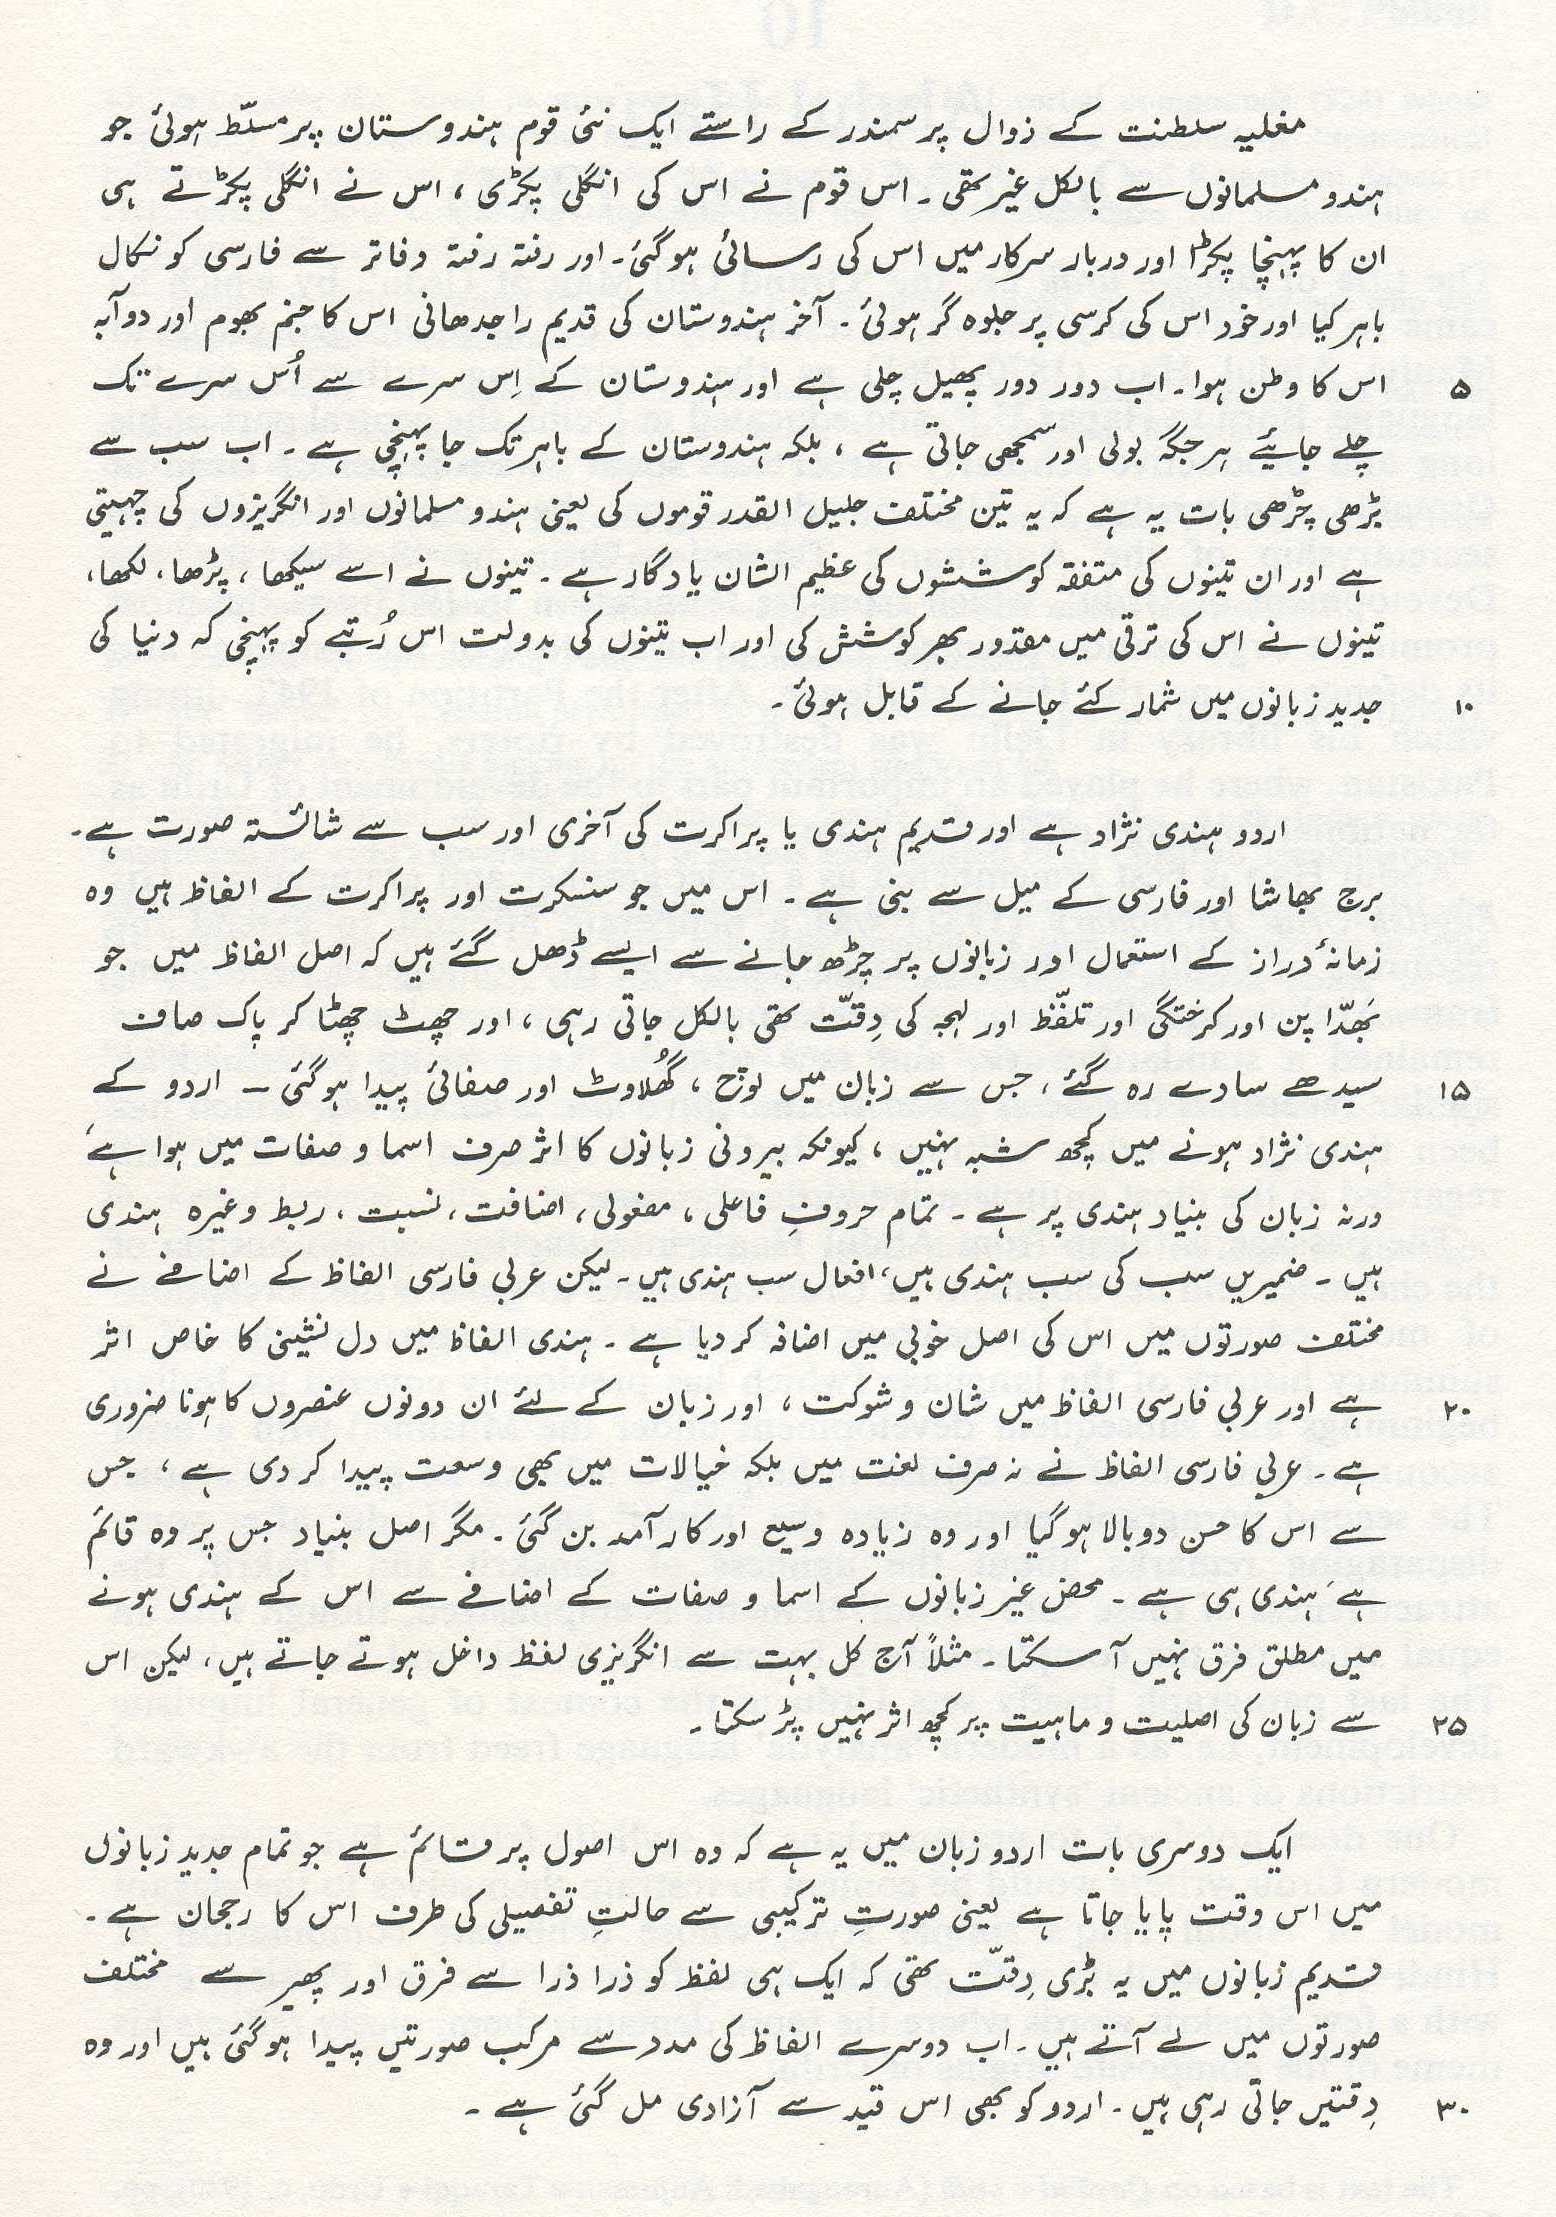 مغلیہ سلطنت کے زوال پر سمندر کے راستے ایک نئی قوم ہندوستان پر مسلّط ہوئی جو
ہندو مسلمانوں سے بالکل غیر تھی ۔ اس قوم نے اس کی انگلی پکڑی ، اس نے انگلی پکڑتے ہی
ان کا پہنچا پکڑا اور دربار سرکار میں اس کی رسائی ہو گئی۔ اور رفتہ رفتہ دفاتر سے فارسی کو نکال
باہر کیا اور خود اس کی کرسی پر جلوہ گر ہوئی ۔ آخر ہندوستان کی قدیم راجدھانی اس کا جنم بھوم اور دوآبہ
۵ اس کا وطن ہوا۔ اب دور دور پھیل چلی ہے اور ہندوستان کے اِس سرے سے اُس سرے تک
چلے جائیے ہر جگہ بولی اور سمجھی جاتی ہے ، بلکہ ہندوستان کے باہر تک جا پہنچی ہے ۔ اب سب سے
بڑھی چڑھی بات یہ ہے کہ یہ تین مختلف جلیل القدر قوموں کی یعنی ہندو مسلمانوں اور انگریزوں کی چہیتی
ہے اور ان تینوں کی متفقہ کوششوں کی عظیم الشان یادگار ہے ۔ تینوں نے اسے سیکھا ، پڑھا، لکھا،
تینوں نے اس کی ترقی میں مقدور بھر کوشش کی اور اب تینوں کی بدولت اس رُتبے کو پہنچی کہ دنیا کی
۱۰ جدید زبانوں میں شمار کئے جانے کے قابل ہوئی ۔
اردو ہندی نژاد ہے اور قدیم ہندی یا پراکرت کی آخری اور سب سے شائستہ صورت ہے ۔
برج بھاشا اور فارسی کے میل سے بنی ہے ۔ اس میں جو سنسکرت اور پراکرت کے الفاظ ہیں وہ
زمانۂ دراز کے استعمال اور زبانوں پر چڑھ جانے سے ایسے ڈھل گئے ہیں کہ اصل الفاظ میں جو
بَھدّا پن اور کرختگی اور تلفّظ اور لہجہ کی دِقتّ تھی بالکل جاتی رہی ، اور چھٹ چھٹا کر پاک صاف
۱۵ سیدھے سادے رہ گئے ، جس سے زبان میں لوچ ، گُھلاوٹ اور صفائی پیدا ہو گئی ـ اردو کے
ہندی نژاد ہونے میں کچھ شبہ نہیں ، کیونکہ بیرونی زبانوں کا اثر صرف اسما و صفات میں ہوا ہے،
ورنہ زبان کی بنیاد ہندی پر ہے ۔ تمام حروفِ فاعلی ، مفعولی ، اضافت ، نسبت ، ربط وغیرہ ہندی
ہیں ۔ ضمیریں سب کی سب ہندی ہیں، افعال سب ہندی ہیں۔ لیکن عربی فارسی الفاظ کے اضافے نے
مختلف صورتوں میں اس کی اصل خوبی میں اضافہ کر دیا ہے ۔ ہندی الفاظ میں دل نشینی کا خاص اثر
۲۰ ہے اور عربی فارسی الفاظ میں شان و شوکت ، اور زبان کے لئے ان دونوں عنصروں کا ہونا ضروری
ہے ۔ عربی فارسی الفاظ نے نہ صرف لغت میں بلکہ خیالات میں بھی وسعت پیدا کر دی ہے ، جس
سے اس کا حسن دوبالا ہو گیا اور وہ زیادہ وسیع اور کارآمد بن گئی ۔ مگر اصل بنیاد جس پر وہ قائم
ہے، ہندی ہی ہے ۔ محض غیر زبانوں کے اسما و صفات کے اضافے سے اس کے ہندی ہونے
میں مطلق فرق نہیں آ سکتا ۔ مثلاً آج کل بہت سے انگریزی لفظ داخل ہوتے جاتے ہیں، لیکن اس
۲۵ سے زبان کی اصلیت و ماہیت پر کچھ اثر نہیں پڑ سکتا ۔
ایک دوسری بات اردو زبان میں یہ ہے کہ وہ اس اصول پر قائم ہے جو تمام جدید زبانوں
میں اس وقت پایا جاتا ہے یعنی صورتِ ترکیبی سے حالتِ تفصیلی کی طرف اس کا رجحان ہے ۔
قدیم زبانوں میں یہ بڑی دِقتّ تھی کہ ایک ہی لفظ کو ذرا ذرا سے فرق اور پھیر سے مختلف
صورتوں میں لے آتے ہیں ۔ اب دوسرے الفاظ کی مدد سے مرکب صورتیں پیدا ہو گئی ہیں اور وہ
۳۰ دِقتیں جاتی رہی ہیں ۔ اردو کو بھی اس قید سے آزادی مل گئی ہے ۔